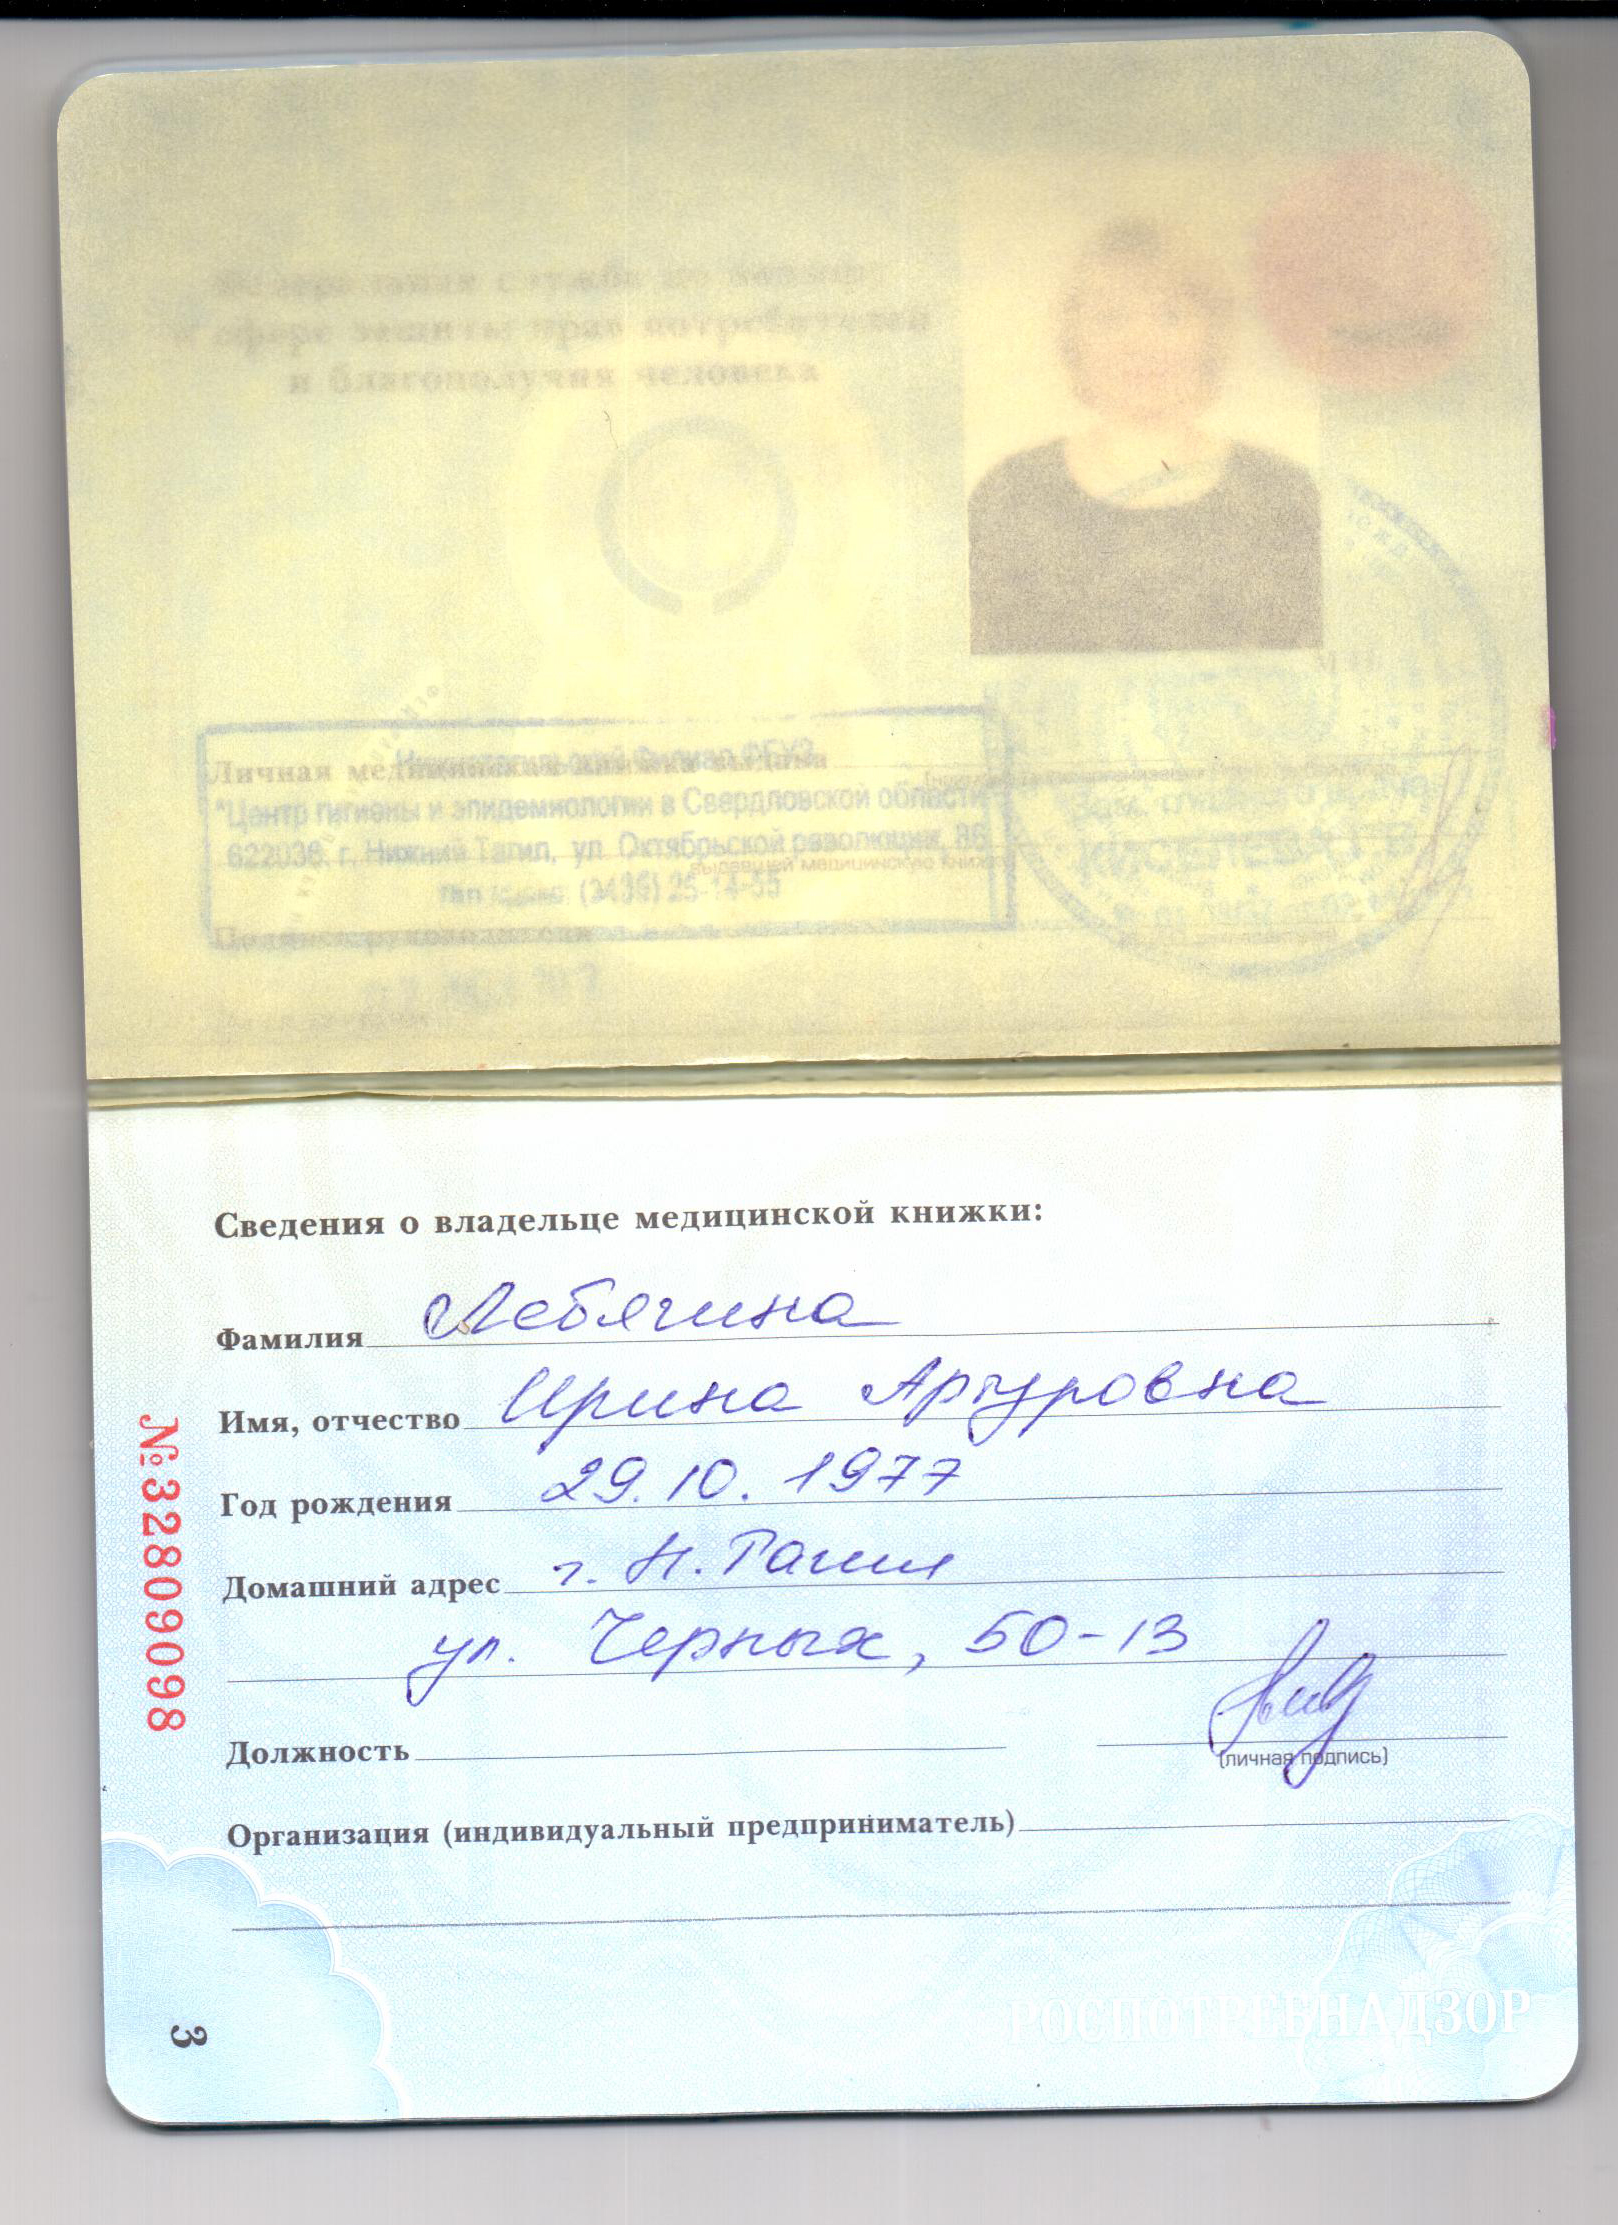 сфере защиты прав потребителей
и благополучия человека
Нижнетагильский Филиал ФБУЗ
Личная медицинская книжка выдана
"Центр гигиены и эпидемиологии в Свердловской области
622036, г. Нижний Тагил, ул. Октябрьской революции, 86
выдавшей медицинскую книжку
(3435) 25-14-55
Подпись руководителя
М.П.
Сведения о владельце медицинской книжки:
Фамилия Лебягина
Имя, отчество Ирина Артуровна
Год рождения 29.10.1977
Домашний адрес г. Н.Тагил
ул. Черных, 50-13
Должность
(личная подпись)
Организация (индивидуальный предприниматель)
№32809098
РОСПОТРЕБНАДЗОР
3